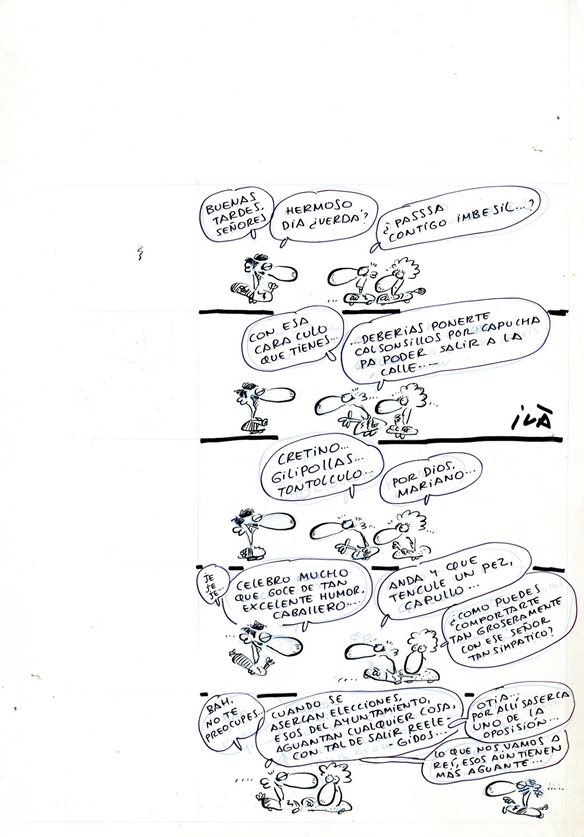 BUENAS
TARDES,
SEÑORES
HERMOSO
DIA ¿VERDÁ?
¿PASSSA
CONTIGO IMBESIL...?
CON ESA
CARA CULO
QUE TIENES...
...DEBERIAS PONERTE
CALSONSILLOS POR CAPUCHA
PA PODER SALIR A LA
CALLE...
iVÀ
CRETINO...
GILIPOLLAS...
TONTOLCULO...
POR DIOS,
MARIANO...
JE
JE
JE...
CELEBRO MUCHO
QUE GOCE DE TAN
EXCELENTE HUMOR,
CABALLERO...
ANDA Y QUE
TENCULE UN PEZ,
CAPULLO...
¿COMO PUEDES
COMPORTARTE
TAN GROSERAMENTE
CON ESE SEÑOR
TAN SIMPATICO?
BAH,
NO TE
PREOCUPES...
CUANDO SE
ASERCAN ELECCIONES,
ESOS DEL AYUNTAMIENTO,
AGUANTAN CUALQUIER COSA,
CON TAL DE SALIR REELE-
GIDOS...
OTIA...
POR ALLI SASERCA
UNO DE LA
OPOSISIÓN...
LO QUE NOS VAMOS A
REÍ, ESOS AÚN TIENEN
MÁS AGUANTE...